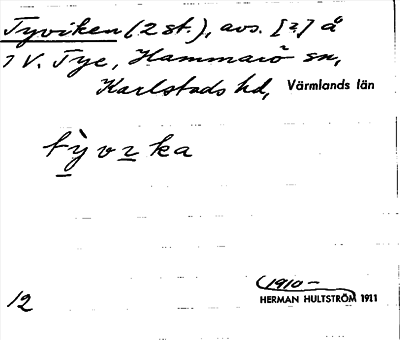 Tyviken (2 st.), avs. [?] å
1 V. Tye, Hammarö sn,
Karlstads hd, Värmlands län
tỳvıka
12
(1910-
HERMAN HULTSTRÖM 1911